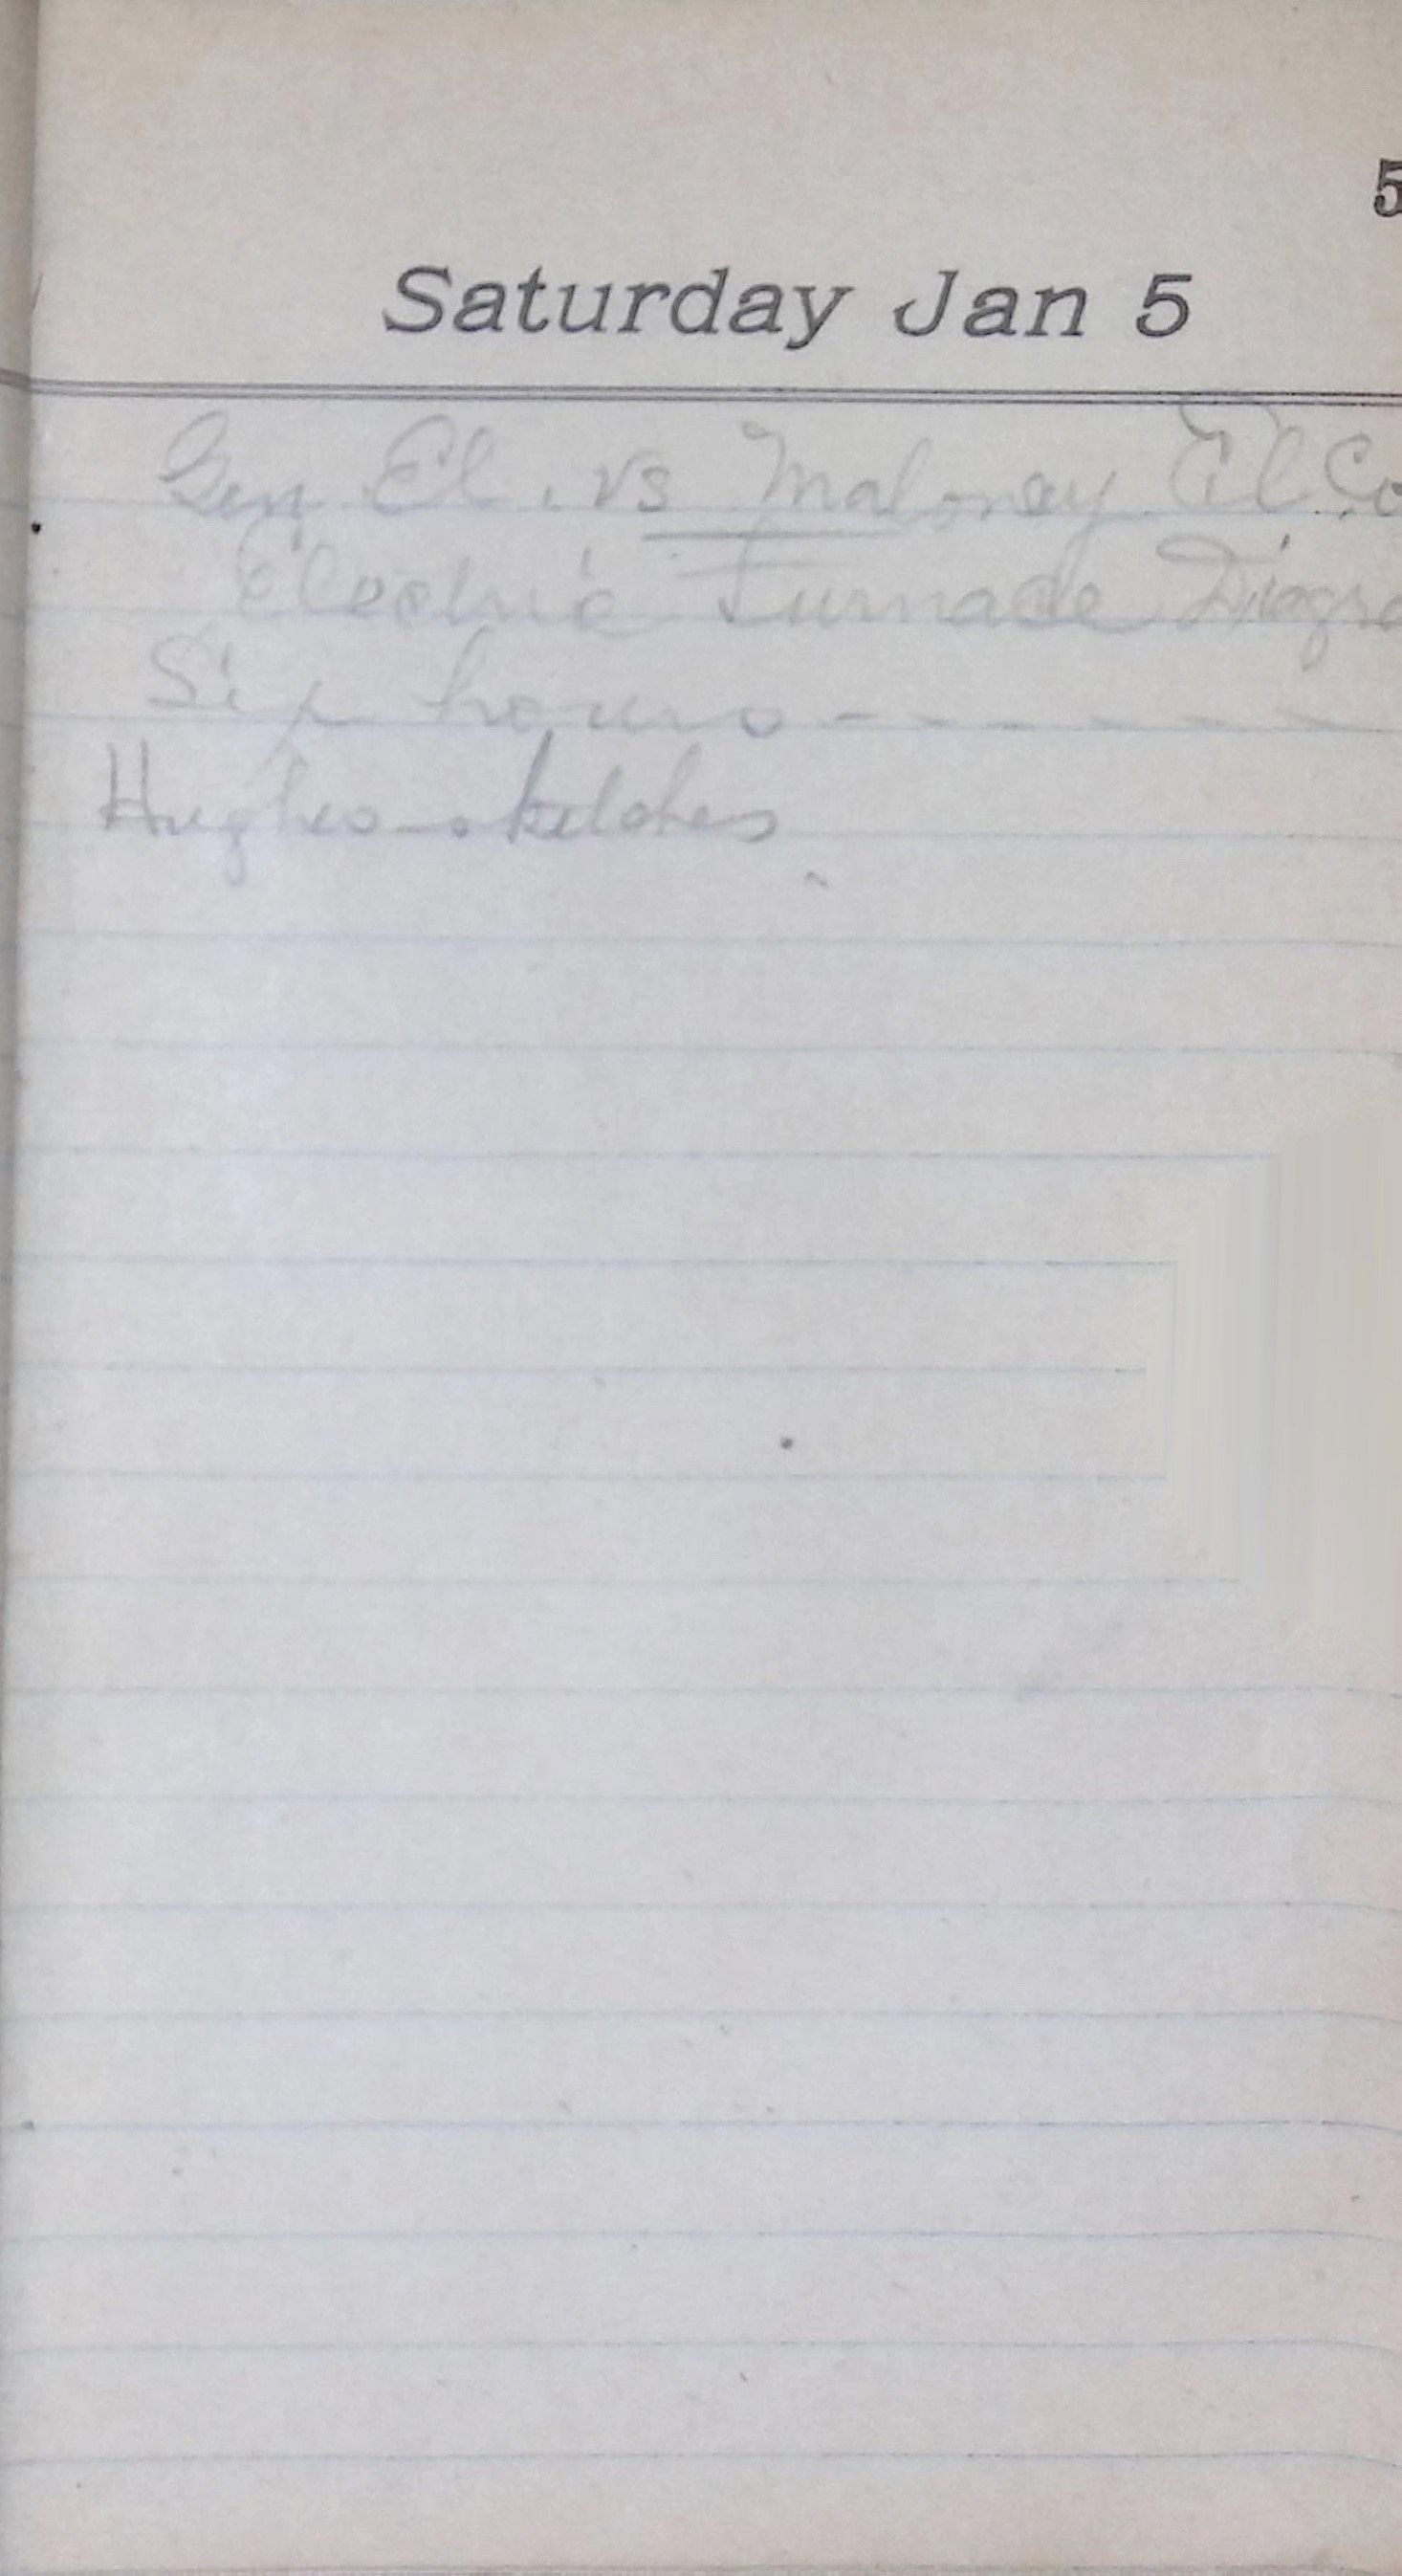 5
Saturday Jan 5
Gen El. vs Maloney El Co
Electric Furnace Diagra
Six hours - - - - - -
Hughes sketches